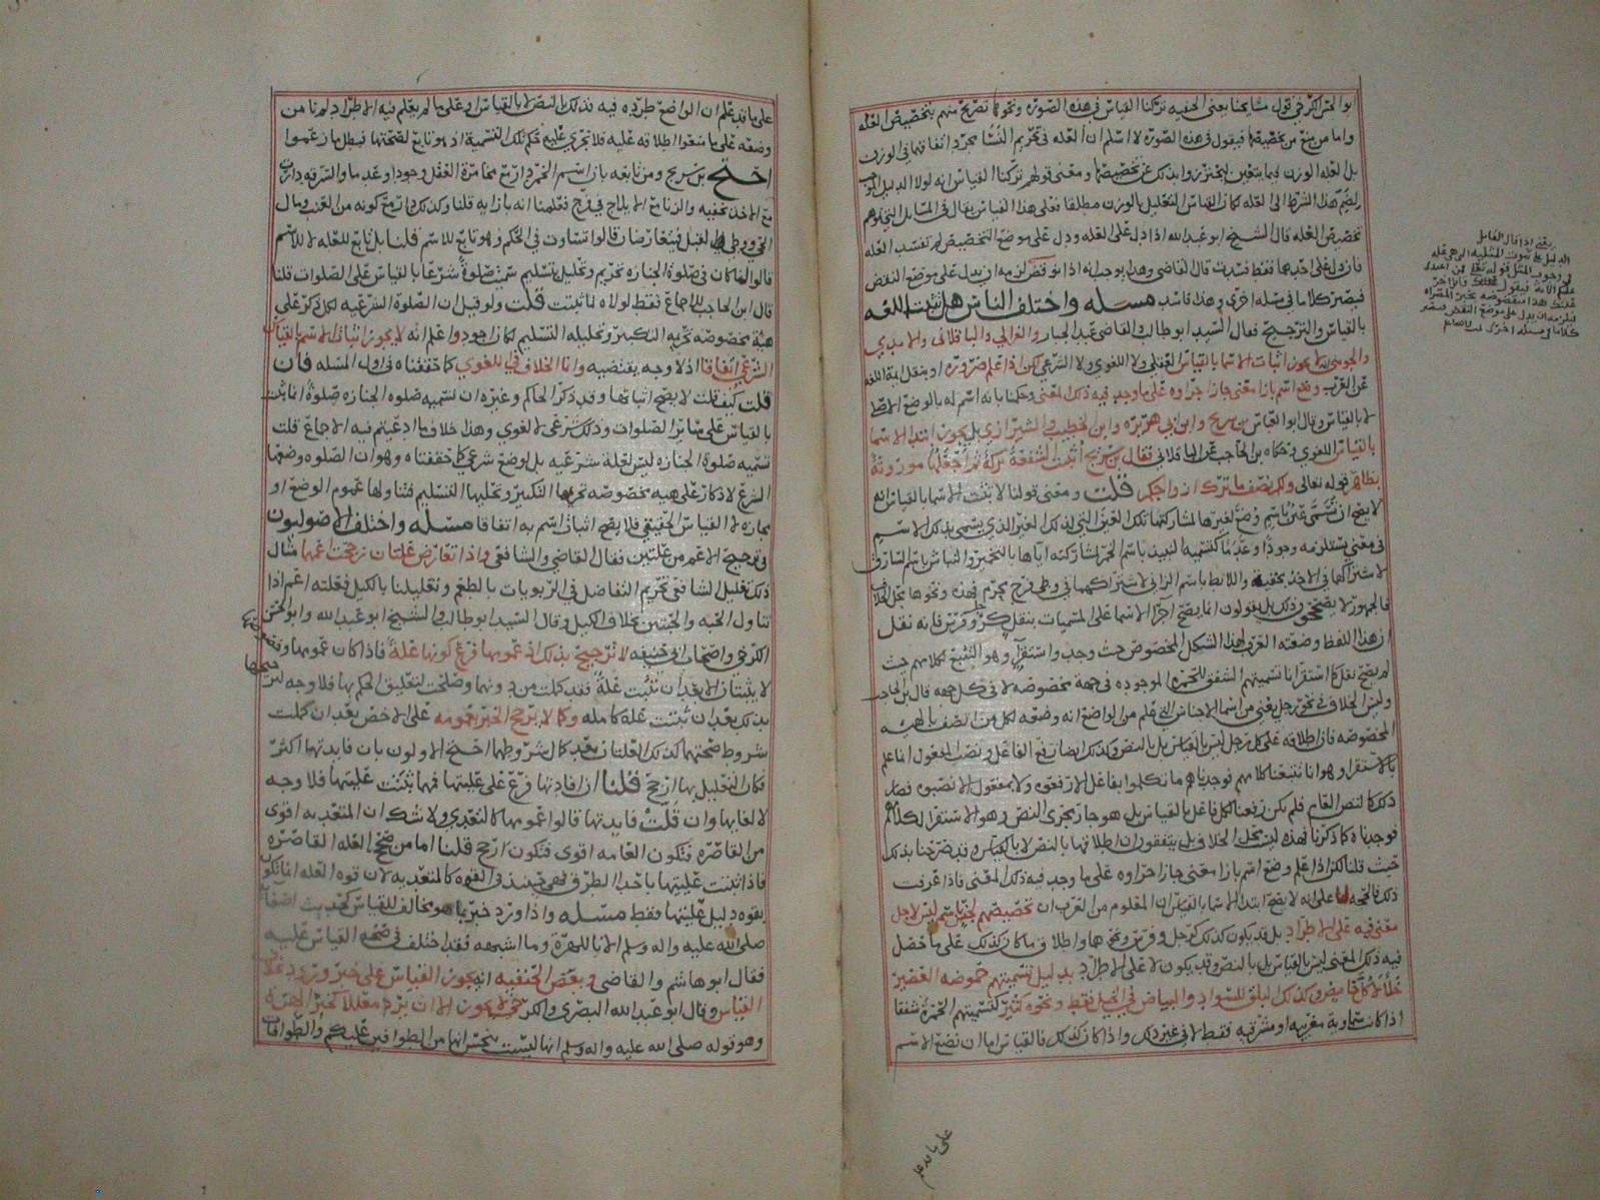 ابو الحسن الكرخي قول مشايخنا يعني الحنفيه تركنا القياس في هذه الصوره ونحوها تصريح منهم بتخصيص العله
واما من منع من تخصيصها فيقول في هذه الصوره لا اسلم ان العله في تحريم النسا مجرد اتفاقهما في الوزن
بل العله الوزن فيما يتعين ليحترزوا بذلك عن تخصيصها ومعنى قولهم تركنا القياس انه لولا الدليل الموجب
لضم هذا الشرط الى العله لكان القياس التعليل بالوزن مطلقا فعلى هذا القياس يقال في المسايل التي توهم
تخصيص العله قال الشيخ ابو عبد الله اذا دل على العله ودل على موضع التخصيص لم تفسد العله
فان دل على احدهما فقط فسدت قال القاضي وهذا يوجب انه اذا نوقض لزمه ان يدل على موضع النقض
فيصير كلاما في مسله اخرى وهذا فاسد مسله واختلف الناس هل تثبت اللغه
بالقياس والترجيح فقال السيد ابو طالب والقاضي عبد الجبار والغزالي والباقلاني والامدي
والجويني لا يجوز اثبات الاسما بالقياس العقلي ولا اللغوي ولا الشرعي لكن اذا علم ضروره او بنقل ايمة اللغه
عن العرب وضع اسم بازا معنى جاز اجراوه على ما وجد فيه ذلك المعنى وحكمنا بانه اسم له بالوضع الاصلي
لا بالقياس وقال ابو العباس بن سريج وابن ابي هريره وابن الخطيب والشيرازي بل يجوز ابتدا الاسما
بالقياس اللغوي وحكاه بن الحاجب عن الباقلاني فقال بن سريج اثبت الشفعة تركة ثم اجعلها موروثة
بظاهر قوله تعالى ولكم نصف ما ترك ازواجكم قلت ومعنى قولنا لا تثبت الاسما بالقياس انه
لا يصح ان تسمى عين باسم وضع لغيرها لمشاركتها تلك العين التي لذلك الغير الذي يسمى بذلك الاسم
في معنى يستلزمه وجودا وعدما كتسميه النبيذ باسم الخمر لمشاركته اياها بالتخمير والنباش باسم السارق
لاشتراكهما في الاخذ بخفية واللايط باسم الزاني لاشتراكهما في وطي فرج محرم فهذه ونحوها محل الخلاف
فالجمهور لا يصححون ذلك بل يقولون انما يصح اجرا الاسما على المسميات بنقل كرجل وفرس فانه نقل
ان هذا اللفظ وضعته العرب لهذا الشكل المخصوص حيث وجد واستقرا وهو التتبع لكلامهم حيث
لم يصح نقل كما استقرانا تسميتهم الشفق للحمره الموجوده في جهة مخصوصه لا في كل جهه قال بن الحاجب
وليس الخلاف في نحو رجل يعني من اسما الاجناس التي علم من الواضع انه وضعه لكل من اتصف بالهيه
المخصوصه فان اطلاقه على كل رجل ليس بالقياس بل بالنص وكذلك ايضا رفع الفاعل ونصب المفعول انما علم
بالاستقرا وهو انا تتبعنا كلامهم فوجدناهم ما تكلموا بفاعل الا رفعوه ولا بمفعول الا نصبوه فصار
ذلك كالنص العام فلم يكن رفعنا لكل فاعل بالقياس بل هو جار مجرى النص وهو الاستقرا لكلامهم
فوجدناه كما ذكرنا فهذه ليس محل الخلاف بل يتفقون ان اطلاقها بالنص لا بالقياس وقد صرحنا بذلك
حيث قلنا لكن اذا علم وضع اسم بازا معنى جاز اجراوه على ما وجد فيه ذلك المعنى فاذا عرفت
ذلك فالحجه لنا على انه لا يصح ابتدا الاسما بالقياس ان المعلوم من العرب ان تخصيصهم لجنس باسم ليس لاجل
معنى فيه على الاطراد بل قد يكون كذلك كرجل وفرس ونحوها واطلاق ما كان كذلك على ما حصل
فيه ذلك المعنى ليس بالقياس بل بالنص وقد يكون لا على الاطراد بدليل تسميتهم حموضه العصير
خلا لا كل حامض وكذلك البلق للسواد والبياض في الخيل فقط ونحوه كثير كتسميتهم الحمرة شفقا
اذا كانت سماوية مغربيه او مشرقيه فقط لا في غير ذلك واذا كان كذلك فالقياس اما ان تضع الاسم
على ما قد
يعني اذا قال القايل
على ما قد علم ان الواضع طرده فيه فذلك بالنص لا بالقياس او على ما لم يعلم فيه الاطراد لم نامن
وضعه على ما منعوا اطلاقه عليه فلا تجري عليه حكم تلك التسمية اذ هو تابع لصحتها فبطل ما زعموا
احتج بن سريج ومن تابعه بان اسم الخمر دار مع مخامرة العقل وجودا وعدما والسرقه دارت
مع الاخذ بخفيه والزنا مع الايلاج في فرج فعلمنا انه بازايه قلنا وكذلك دار مع كونه من العنب ومال
الحي ووطي في القبل فيتعارضان قالوا تساوت في الحكم وهو تابع للاسم قلنا بل تابع للعله لا للاسم
قالوا لما كان في صلوة الجنازه تحريم وتحليل بتسليم سميت صلوة شرعا بالقياس على الصلوات قلنا
قال ابن الحاجب للاجماع فقط لولاه لما ثبتت قلت ولو قيل ان الصلوة الشرعيه لكل ذكر على
هيئة مخصوصه تحريمه التكبير وتحليله التسليم لكان اجود واعلم انه لا يجوز اثبات الاسم بالقياس
الشرعي اتفاقا اذ لا وجه يقتضيه وانما الخلاف في اللغوي كما حققناه في اول المسله فان
قلت كيف قلت لا يصح اثباتها وقد ذكر الحاكم وغيره ان تسميه صلوه الجنازه صلوة انما ثبت
بالقياس على ساير الصلوات وذلك شرعي لا لغوي وهذا خلاف ما ادعيتم فيه الاجماع قلت
تسميه صلوة الجنازه ليس لعلة شرعيه بل لوضع شرعي كما حققناه وهو ان الصلوه وضعها
الشرع لاذكار على هيه مخصوصه تحريمها التكبير وتحليلها التسليم فتناولها عموم الوضع او
مجازه لا القياس الحقيقي فلا يصح اثبات اسم به اتفاقا مسله واختلف الاصوليون
في ترجيح الاعم من علتين فقال القاضي والشافعي واذا تعارض علتان رجحت اعمها مثال
ذلك تعليل الشافعي تحريم التفاضل في الربويات بالطعم وتعليلنا بالكيل فعلته اعم اذا
تناول الحبه والحبتين بخلاف الكيل وقال السيد ابو طالب والشيخ ابو عبد الله وابو الحسن
الكرخي واصحاب ابي حنيفه لا ترجيح بذلك اذ عمومها فرع كونها علة فاذا كان عمومها وقصورها
لا يثبتان الا بعد ان تثبت علة فقد كملت من دونها وصلحت لتعليق الحكم بها فلا وجه لترجيحها
بذلك بعد ان ثبتت علة كامله وكما لا يرجح الخبر بعمومه على الاخص بعد ان كملت
شروط صحتهما كذلك العلتان بعد كمال شروطهما احتج الاولون بان فايدتها اكثر
فكان التعليل بها ارجح قلنا ان افادتها فرع على عليتها فمهما ثبتت عليتها فلا وجه
لالغايها وان قلت فايدتها قالوا عمومها كالتعدي ولا شك ان المتعديه اقوى
من القاصره فتكون العامه اقوى فتكون ارجح قلنا اما من صحح العله القاصره
فاذا ثبتت عليتها باحد الطرق فهي حينئذ في القوه كالمتعديه لان قوه العله انما تكون
بقوه دليل عليتها فقط مسله واذا ورد خبر بما هو مخالف للقياس كحديث اصغا
صلى الله عليه واله وسلم الانا للهرة وما اشبهه فقد اختلف في صحة القياس عليه
فقال ابو هاشم والقاضي وبعض الحنفيه انه يجوز القياس على خبر ورد بخلاف
القياس وقال ابو عبد الله البصري والكرخي لا يجوز الا ان يرد معللا كخبر الهره
وهو قوله صلى الله عليه واله وسلم انها ليست بنجس انها من الطوافين عليكم والطوافات